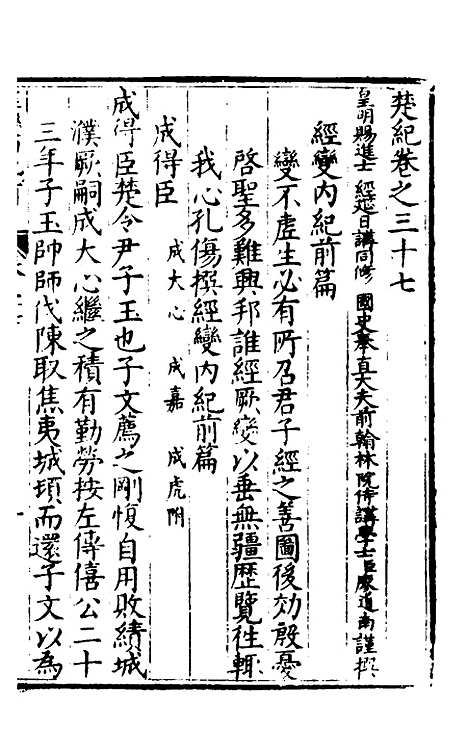 楚紀卷之三十七
皇明賜進士 經筵日講同修 國史奉直大夫前翰林院侍講學士臣廖道南謹撰
經變内紀前篇
變不虛生必有所召君子經之善圖後効殷憂
啓聖多難興邦誰經厥變以垂無疆歷覽往輙
我心孔傷撰經變内紀前篇
成得臣 成大心 成嘉 成虎附
成得臣楚令尹子玉也子文薦之剛愎自用敗績城
濮厥嗣成大心繼之積有勤勞按左傳僖公二十
三年子玉帥師伐陳取焦夷城頓而還子文以為